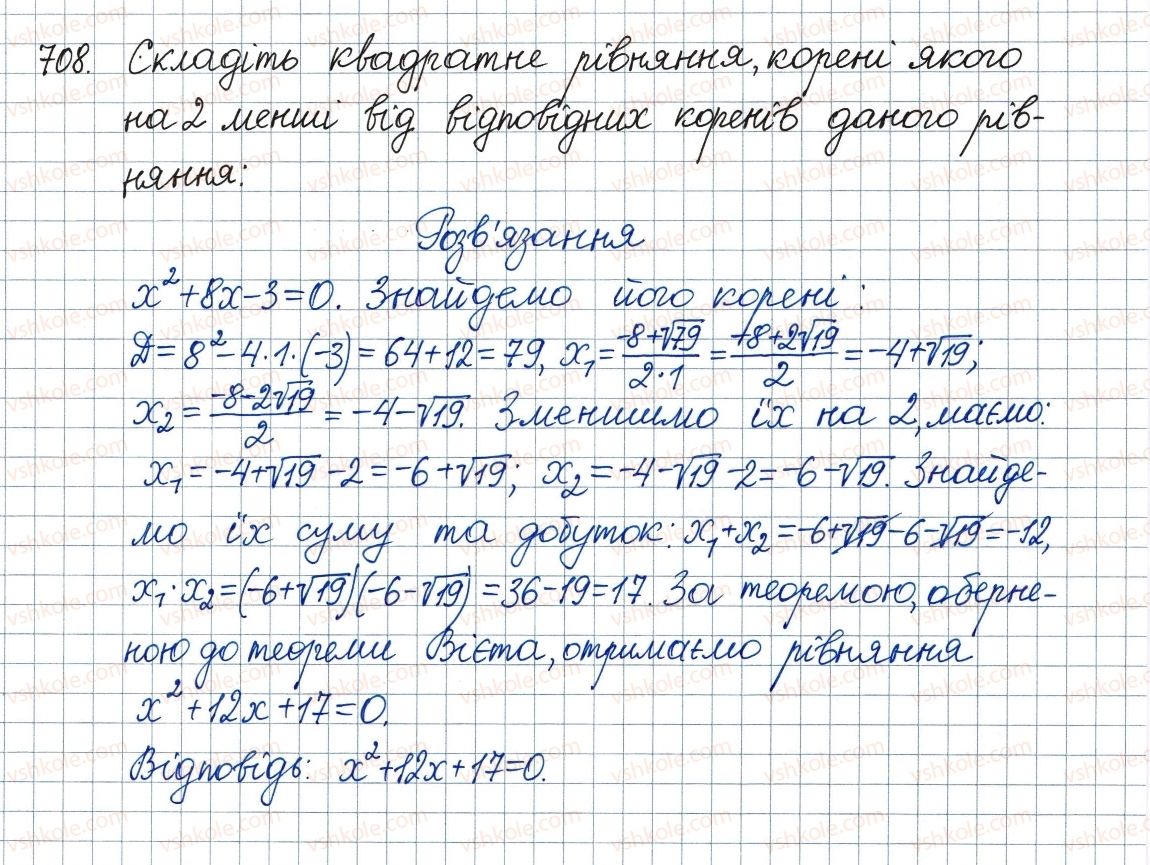 708. Складіть квадратне рівняння, корені якого
на 2 менші від відповідних коренів даного рів-
няння:
Розв'язання
x²+8x-3=0. Знайдемо його корені:
Д=8²-4·1·(-3)=64+12=79, x₁=(-8+√79)/(2·1)=(+8+2√19)/2=-4+√19;
x₂=(-8-2√19)/2=-4-√19. Зменшимо їх на 2, маємо:
x₁=-4+√19-2=-6+√19; x₂=-4-√19-2=-6-√19. Знайде-
мо їх суму та добуток: x₁+x₂=-6+√19-6-√19=-12,
x₁·x₂=(-6+√19)(-6-√19)=36-19=17. За теоремою, оберне-
ною до теореми Вієта, отримаємо рівняння
x²+12x+17=0.
Відповідь: x²+12x+17=0.